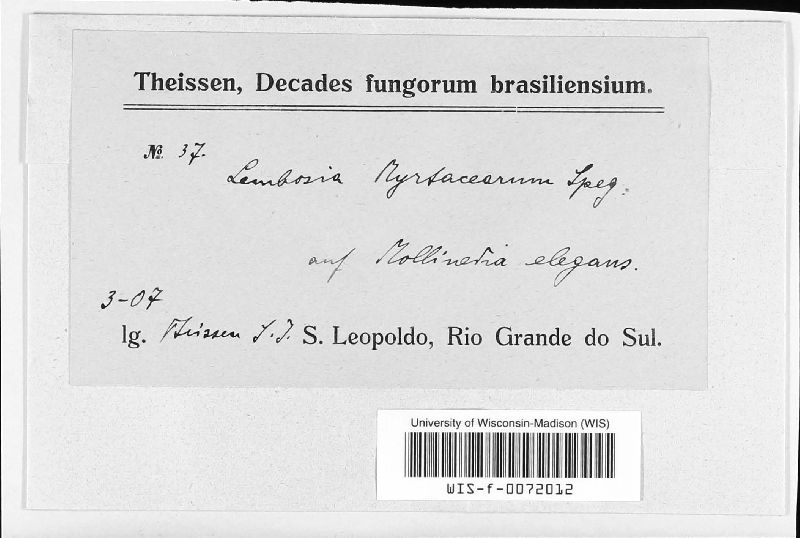 Theissen, Decades fungorum brasiliensium.
№ 37.
Lembosia Myrtacearum Speg.
auf Mollinedia elegans.
3-07
lg. Theissen S. J. S. Leopoldo, Rio Grande do Sul.
University of Wisconsin-Madison (WIS)
WIS-f-0072012